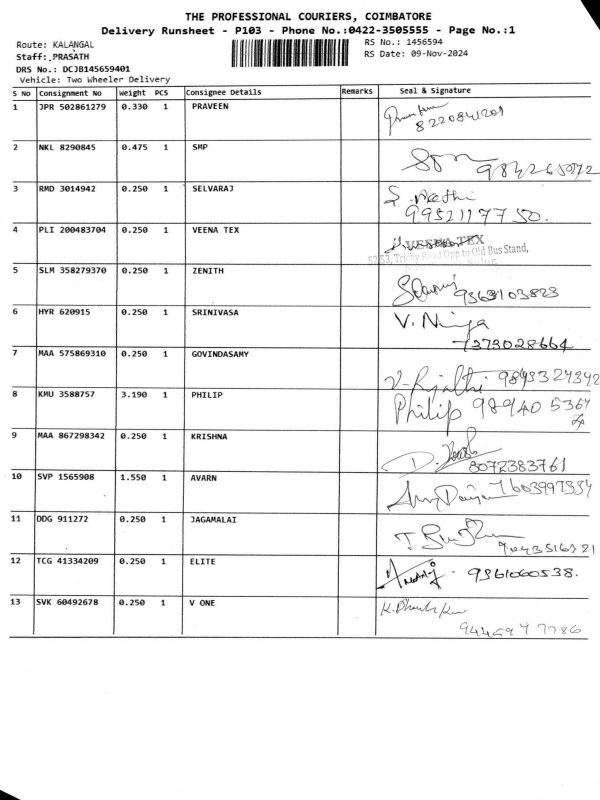 THE PROFESSIONAL COURIERS, COIMBATORE
Delivery Runsheet - P103 - Phone No.:0422-3505555 - Page No.:1
Route: KALANGAL
RS No.: 1456594
Staff:,PRASATH
RS Date: 09-Nov-2024
DRS No.: DCJB145659401
Vehicle: Two Wheeler Delivery
S No Consignment No Weight PCS Consignee Details Remarks Seal & Signature
1 JPR 502861279 0.330 1 PRAVEEN
8220841201
2 NKL 8290845 0.475 1 SMP
3 RMD 3014942 0.250 1 SELVARAJ
9952117750.
4 PLI 200483704 0.250 1 VEENA TEX
VEENA TEX
52/53, Trichy Road Opp to Old Bus Stand,
5 SLM 358279370 0.250 1 ZENITH
9363103823
6 HYR 620915 0.250 1 SRINIVASA
7373028664
7 MAA 575869310 0.250 1 GOVINDASAMY
9893324342
8 KMU 3588757 3.190 1 PHILIP
Philip 989405364
9 MAA 867298342 0.250 1 KRISHNA
8072383761
10 SVP 1565908 1.550 1 AVARN
11 DDG 911272 0.250 1 JAGAMALAI
12 TCG 41334209 0.250 1 ELITE
9361060538.
13 SVK 60492678 0.250 1 V ONE